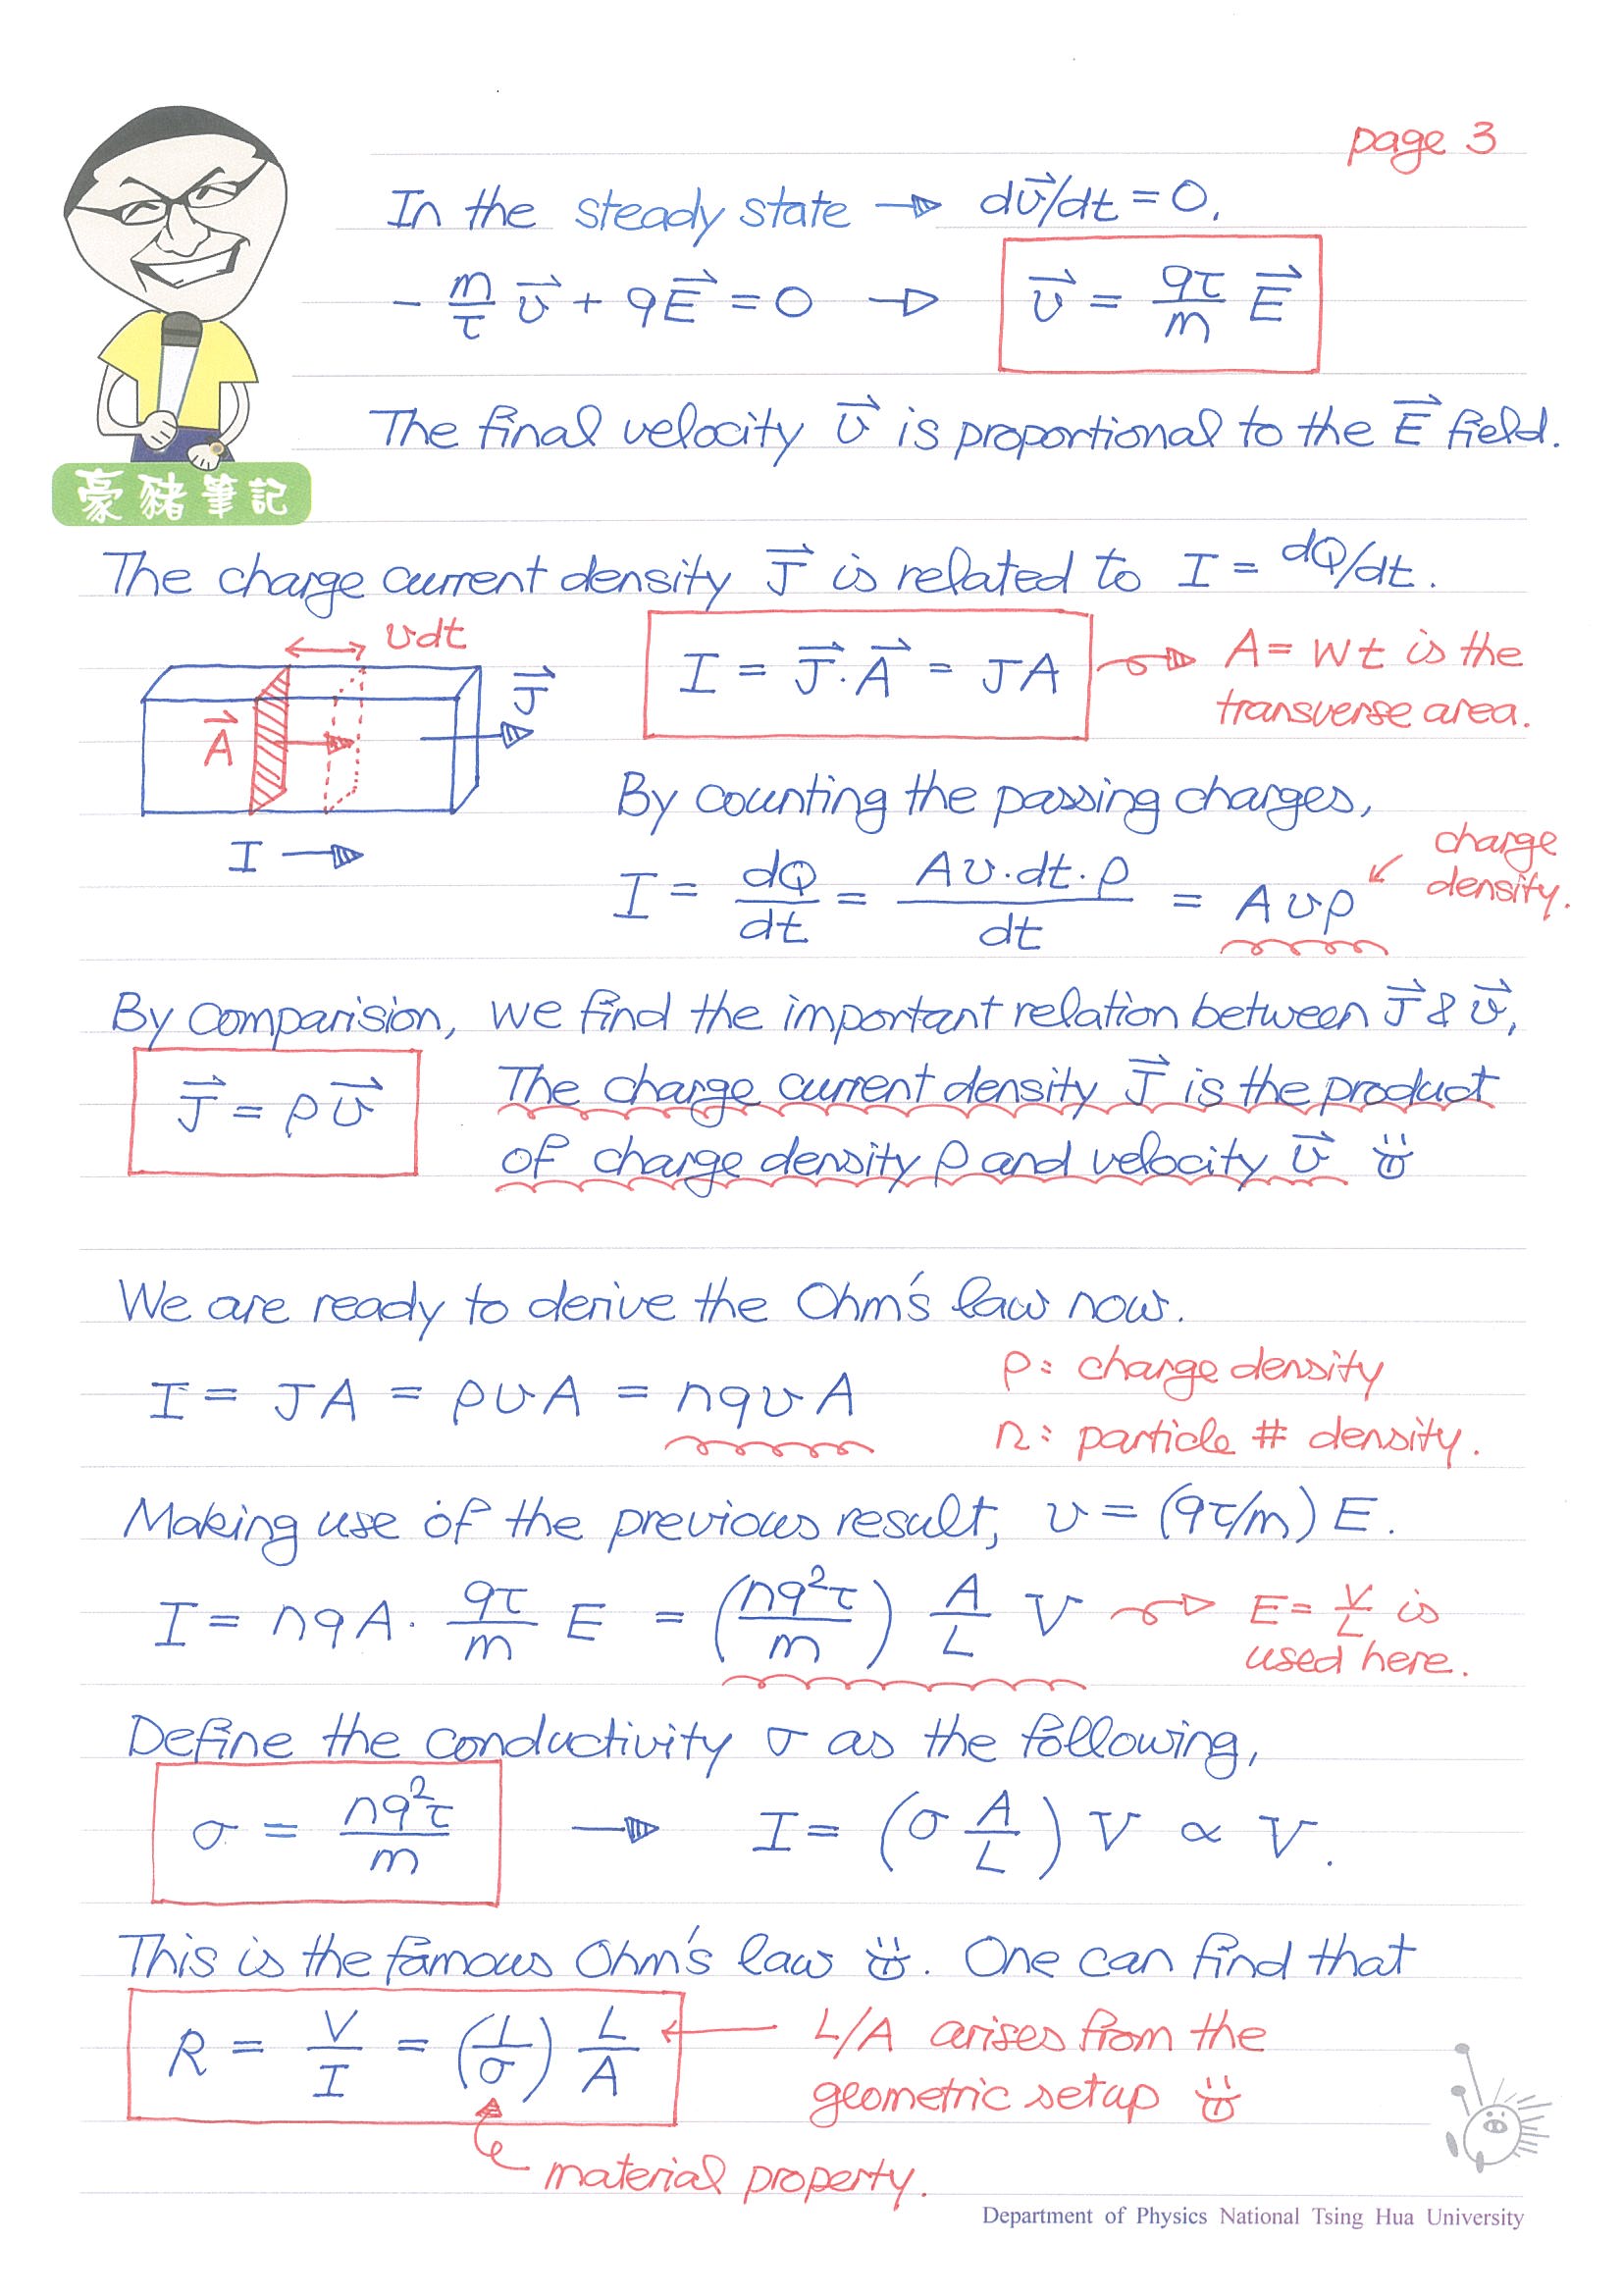 page 3
In the steady state → dv⃗/dt = 0.
- m/τ v⃗ + qE⃗ = 0 → v⃗ = qτ/m E⃗
The final velocity v⃗ is proportional to the E⃗ field.
豪豬筆記
The charge current density J⃗ is related to I = dQ/dt.
vdt
A⃗
J⃗
I →
I = J⃗·A⃗ = JA → A = wt is the
transverse area.
By counting the passing charges,
I = dQ/dt = Av·dt·ρ/dt = Avρ
charge
density.
By comparision, we find the important relation between J⃗ & v⃗,
J⃗ = ρv⃗
The charge current density J⃗ is the product
of charge density ρ and velocity v⃗
We are ready to derive the Ohm's law now.
I = JA = ρvA = nqvA
ρ: charge density
n: particle # density.
Making use of the previous result, v = (qτ/m) E.
I = nqA · qτ/m E = (nq²τ/m) A/L V → E = V/L is
used here.
Define the conductivity σ as the following,
σ = nq²τ/m → I = (σ A/L) V ∝ V.
This is the famous Ohm's law. One can find that
R = V/I = (1/σ) L/A ← L/A arises from the
geometric setup
material property.
Department of Physics National Tsing Hua University